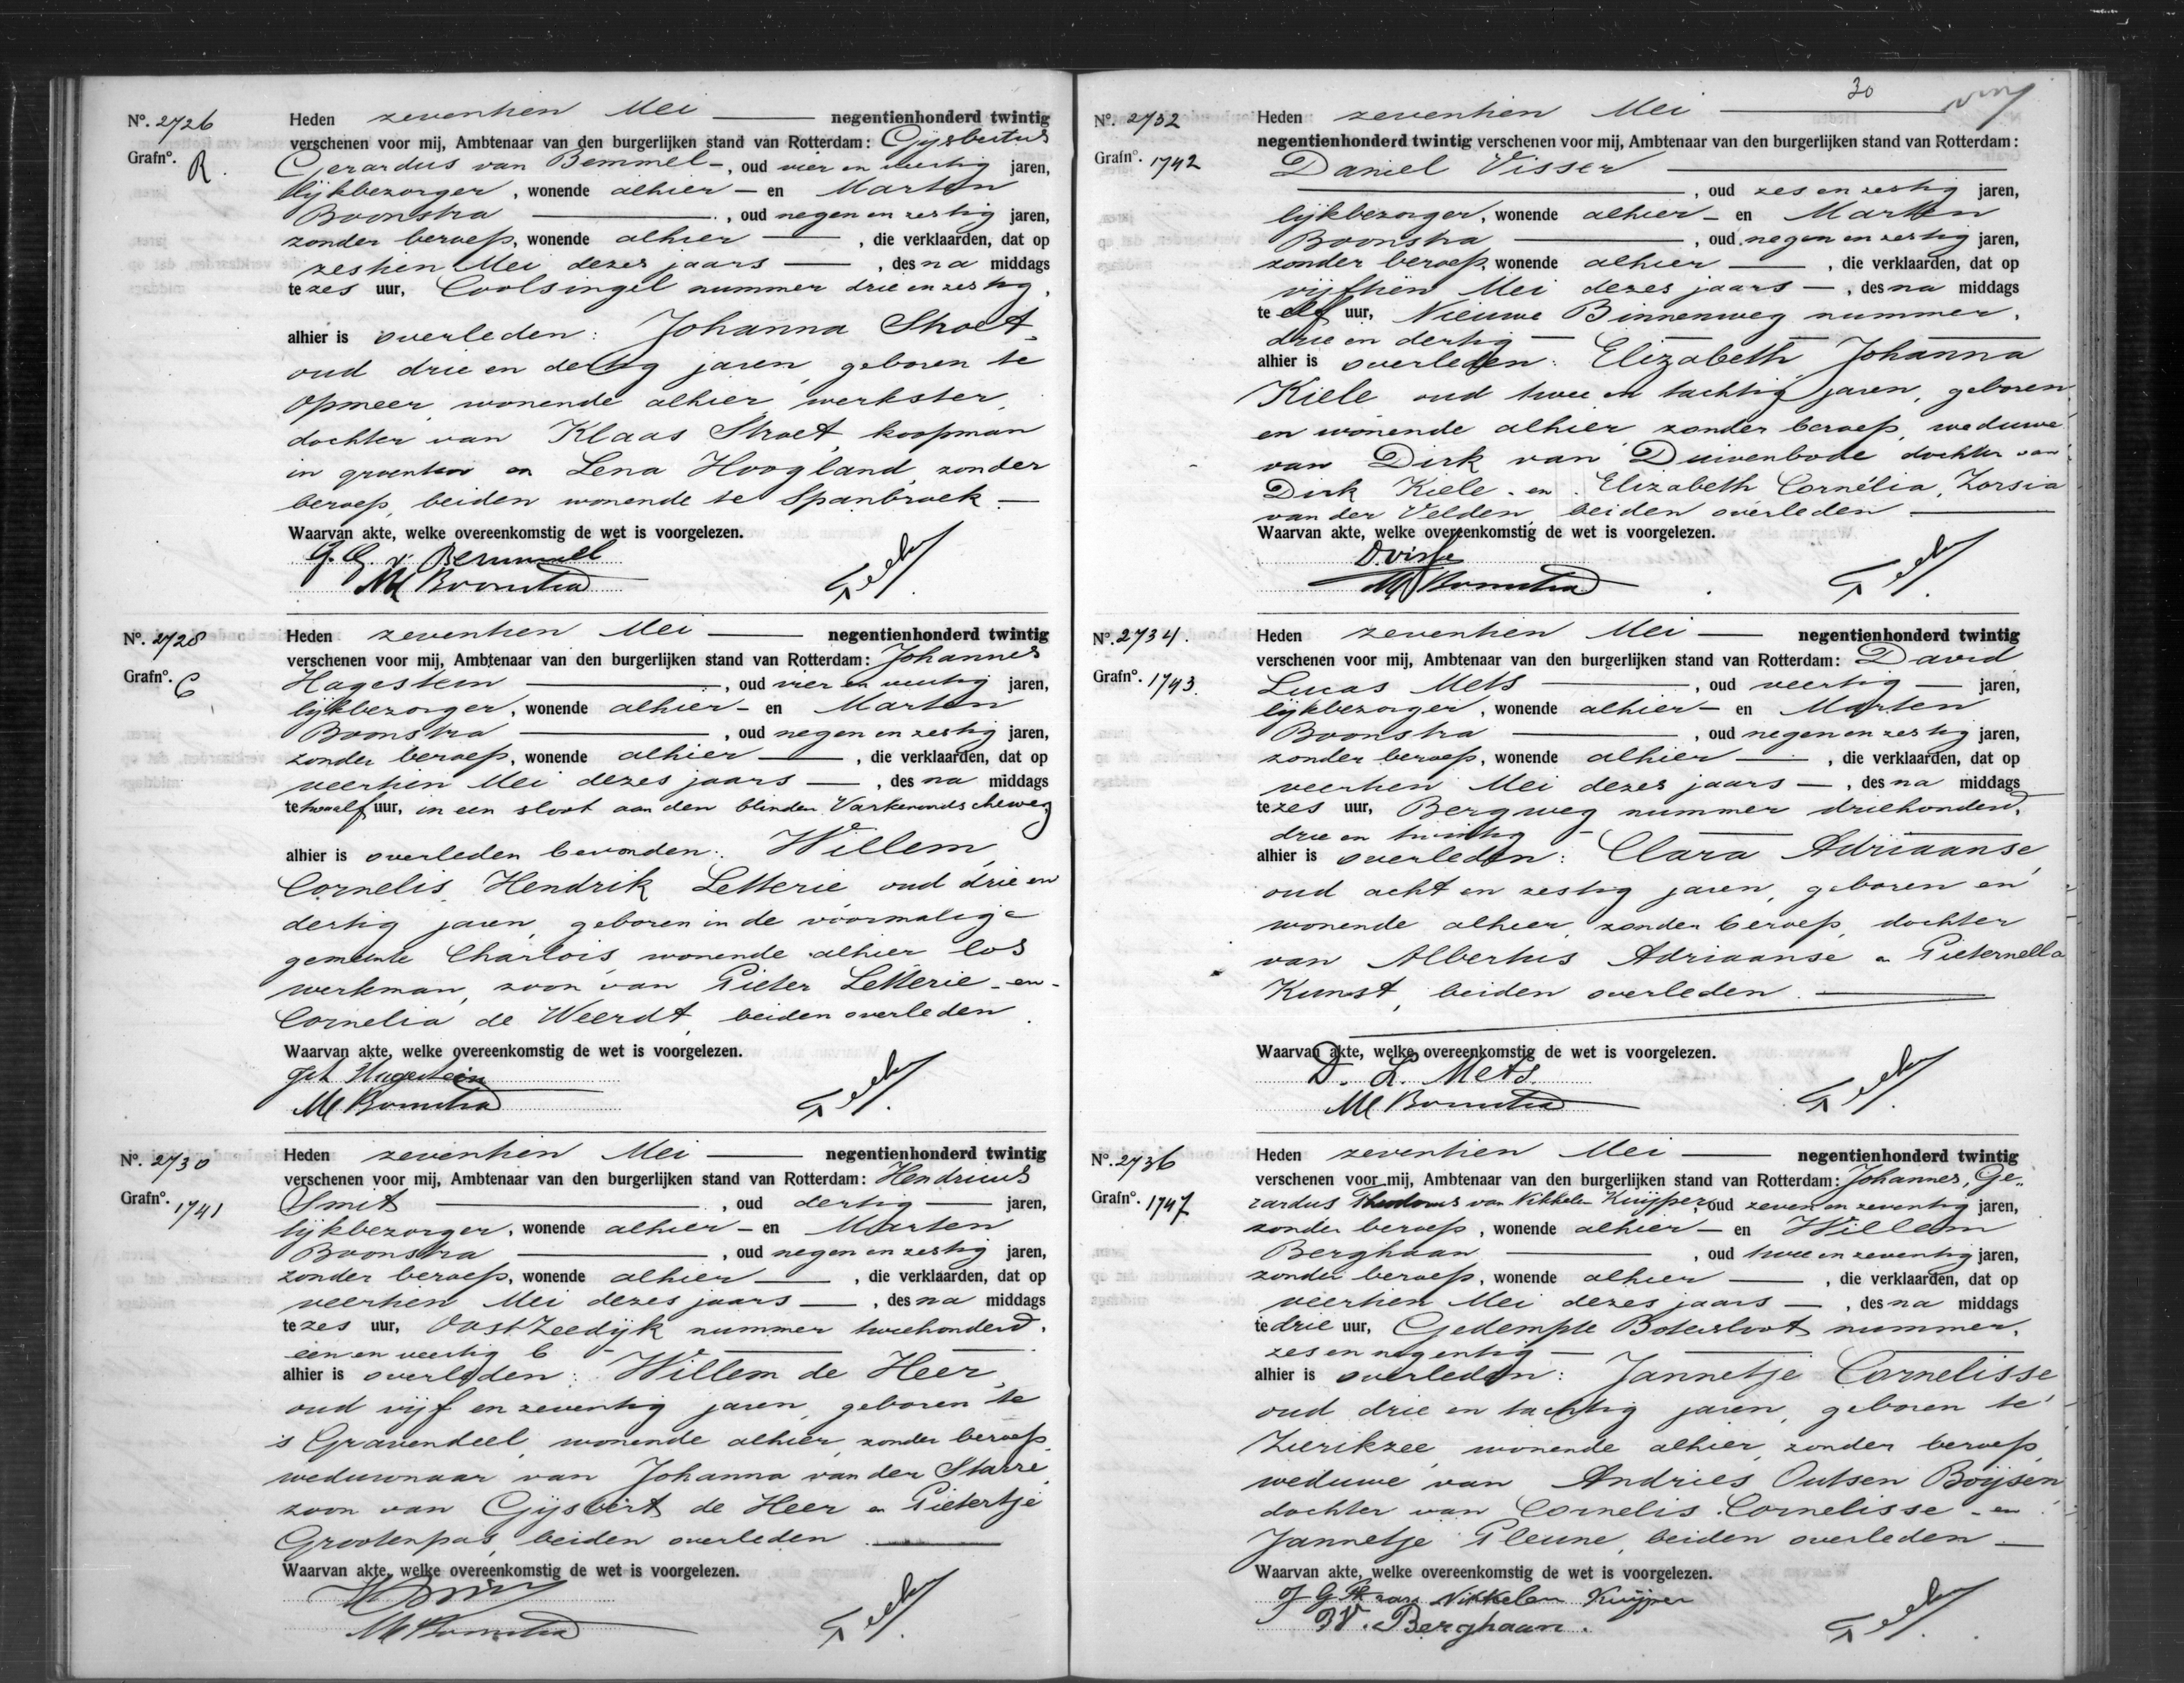 Nº. 2726
Grafnº. R.
Heden zeventien Mei negentienhonderd twintig
verschenen voor mij, Ambtenaar van den burgerlijken stand van Rotterdam: Gijsbertus
Gerardus van Bemmel, oud vier en veertig jaren,
lijkbezorger, wonende alhier en Marten
Boonstra, oud negen en zestig jaren,
zonder beroep, wonende alhier, die verklaarden, dat op
zestien Mei dezes jaars, des na middags
te zes uur, Coolsingel nummer drie en zestig,
alhier is overleden: Johanna Stroet,
oud drie en dertig jaren, geboren te
Opmeer, wonende alhier, werkster,
dochter van Klaas Stroet, koopman
in groenten en Lena Hoogland, zonder
beroep, beiden wonende te Spanbroek
Waarvan akte, welke overeenkomstig de wet is voorgelezen.
G. G. v. Bemmel
M Boonstra
Nº. 2728
Grafnº. C
Heden zeventien Mei negentienhonderd twintig
verschenen voor mij, Ambtenaar van den burgerlijken stand van Rotterdam: Johannes
Hagestein, oud vier en veertig jaren,
lijkbezorger, wonende alhier en Marten
Boonstra, oud negen en zestig jaren,
zonder beroep, wonende alhier, die verklaarden, dat op
veertien Mei dezes jaars, des na middags
te twaalf uur, in een sloot aan den blinden Varkenoordscheweg
alhier is overleden bevonden: Willem
Cornelis Hendrik Letterie, oud drie en
dertig jaren, geboren in de voormalige
gemeente Charlois, wonende alhier los
werkman, zoon van Pieter Letterie en
Cornelia de Weerdt, beiden overleden.
Waarvan akte, welke overeenkomstig de wet is voorgelezen.
Hagestein
M Boonstra
Nº. 2730
Grafnº. 1741
Heden zeventien Mei negentienhonderd twintig
verschenen voor mij, Ambtenaar van den burgerlijken stand van Rotterdam: Hendricus
Smit, oud dertig jaren,
lijkbezorger, wonende alhier en Marten
Boonstra, oud negen en zestig jaren,
zonder beroep, wonende alhier, die verklaarden, dat op
veertien Mei dezes jaars, des na middags
te zes uur, Oost Zeedijk nummer tweehonderd,
een en veertig b
alhier is overleden: Willem de Heer,
oud vijf en zeventig jaren, geboren te
's Gravendeel, wonende alhier, zonder beroep,
weduwnaar van Johanna van der Starre,
zoon van Gijsbert de Heer en Pietertje
Grootenpas, beiden overleden
Waarvan akte, welke overeenkomstig de wet is voorgelezen.
M Boonstra
30
Nº. 2732
Grafnº. 1742
Heden zeventien Mei
negentienhonderd twintig verschenen voor mij, Ambtenaar van den burgerlijken stand van Rotterdam:
Daniel Visser
, oud zes en zestig jaren,
lijkbezorger, wonende alhier en Marten
Boonstra, oud negen en zestig jaren,
zonder beroep, wonende alhier, die verklaarden, dat op
vijftien Mei dezes jaars, des na middags
te elf uur, Nieuwe Binnenweg nummer,
drie en dertig
alhier is overleden: Elizabeth Johanna
Kiele oud twee en tachtig jaren, geboren
en wonende alhier, zonder beroep, weduwe
van Dirk van Duivenbode dochter van
Dirk Kiele en Elizabeth Cornélia, Zorsia
van der Velden, beiden overleden
Waarvan akte, welke overeenkomstig de wet is voorgelezen.
D. Visser
M Boonstra
Nº. 2734.
Grafnº. 1743.
Heden zeventien Mei negentienhonderd twintig
verschenen voor mij, Ambtenaar van den burgerlijken stand van Rotterdam: David
Lucas Mets, oud veertig jaren,
lijkbezorger, wonende alhier en Marten
Boonstra, oud negen en zestig jaren,
zonder beroep, wonende alhier, die verklaarden, dat op
veertien Mei dezes jaars, des na middags
te zes uur, Bergweg nummer driehonderd,
drie en twintig
alhier is overleden: Clara Adriaanse,
oud acht en zestig jaren, geboren en
wonende alhier, zonder beroep, dochter
van Albertus Adriaanse en Pieternella
Kunst, beiden overleden.
Waarvan akte, welke overeenkomstig de wet is voorgelezen.
D. L. Mets.
M Boonstra
Nº. 2736
Grafnº. 1747
Heden zeventien Mei negentienhonderd twintig
verschenen voor mij, Ambtenaar van den burgerlijken stand van Rotterdam: Johannes, Ge-
rardus Theodorus van Nikkelen Kuijper, oud zeven en zeventig jaren,
zonder beroep, wonende alhier en Willem
Berghaan, oud twee en zeventig jaren,
zonder beroep, wonende alhier, die verklaarden, dat op
veertien Mei dezes jaars, des na middags
te drie uur, Gedempte Botersloot nummer,
zes en negentig
alhier is overleden: Jannetje Cornelisse
oud drie en tachtig jaren, geboren te
Zierikzee, wonende alhier, zonder beroep,
weduwe van Andries Outsen Boijsen,
dochter van Cornelis Cornelisse en
Jannetje Pleune, beiden overleden
Waarvan akte, welke overeenkomstig de wet is voorgelezen.
J G Th van Nikkelen Kuijper
W. Berghaan.